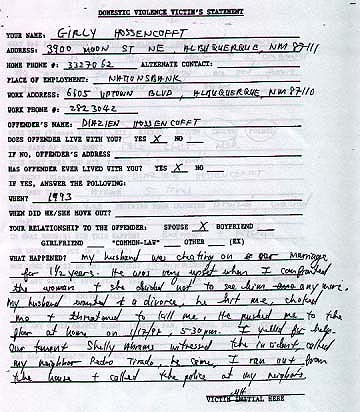 DOMESTIC VIOLENCE VICTIM'S STATEMENT
YOUR NAME: GIRLY HOSSENCOFFT
ADDRESS: 3900 MOON ST NE, ALBUQUERQUE, NM 87111
HOME PHONE #: 3327062 ALTERNATE CONTACT:
PLACE OF EMPLOYMENT: NATIONSBANK
WORK ADDRESS: 6605 UPTOWN BLVD, ALBUQUERQUE, NM 87110
WORK PHONE #: 2823042
OFFENDER'S NAME: DIAZIEN HOSSENCOFFT
DOES OFFENDER LIVE WITH YOU? YES X NO
IF NO, OFFENDER'S ADDRESS
HAS OFFENDER EVER LIVED WITH YOU? YES X NO
IF YES, ANSWER THE FOLLOWING:
WHEN? 1993
WHEN DID HE/SHE MOVE OUT?
YOUR RELATIONSHIP TO THE OFFENDER: SPOUSE X BOYFRIEND
GIRLFRIEND "COMMON-LAW" OTHER (EX)
WHAT HAPPENED? my husband was cheating on our marriage
for 1½ years. He was very upset when I confronted
the woman & she decided not to see him any more.
My husband wanted a divorce, he hit me, choked
me & threatened to kill me. He pushed me to the
floor at home on 5:30 pm. I yelled for help.
Our tenant Shelly Abrams witnessed the incident, called
my neighbor Pedro Tirado, he came, I ran out from
the house & called the police at my neighbors.
GH
VICTIM INITIAL HERE